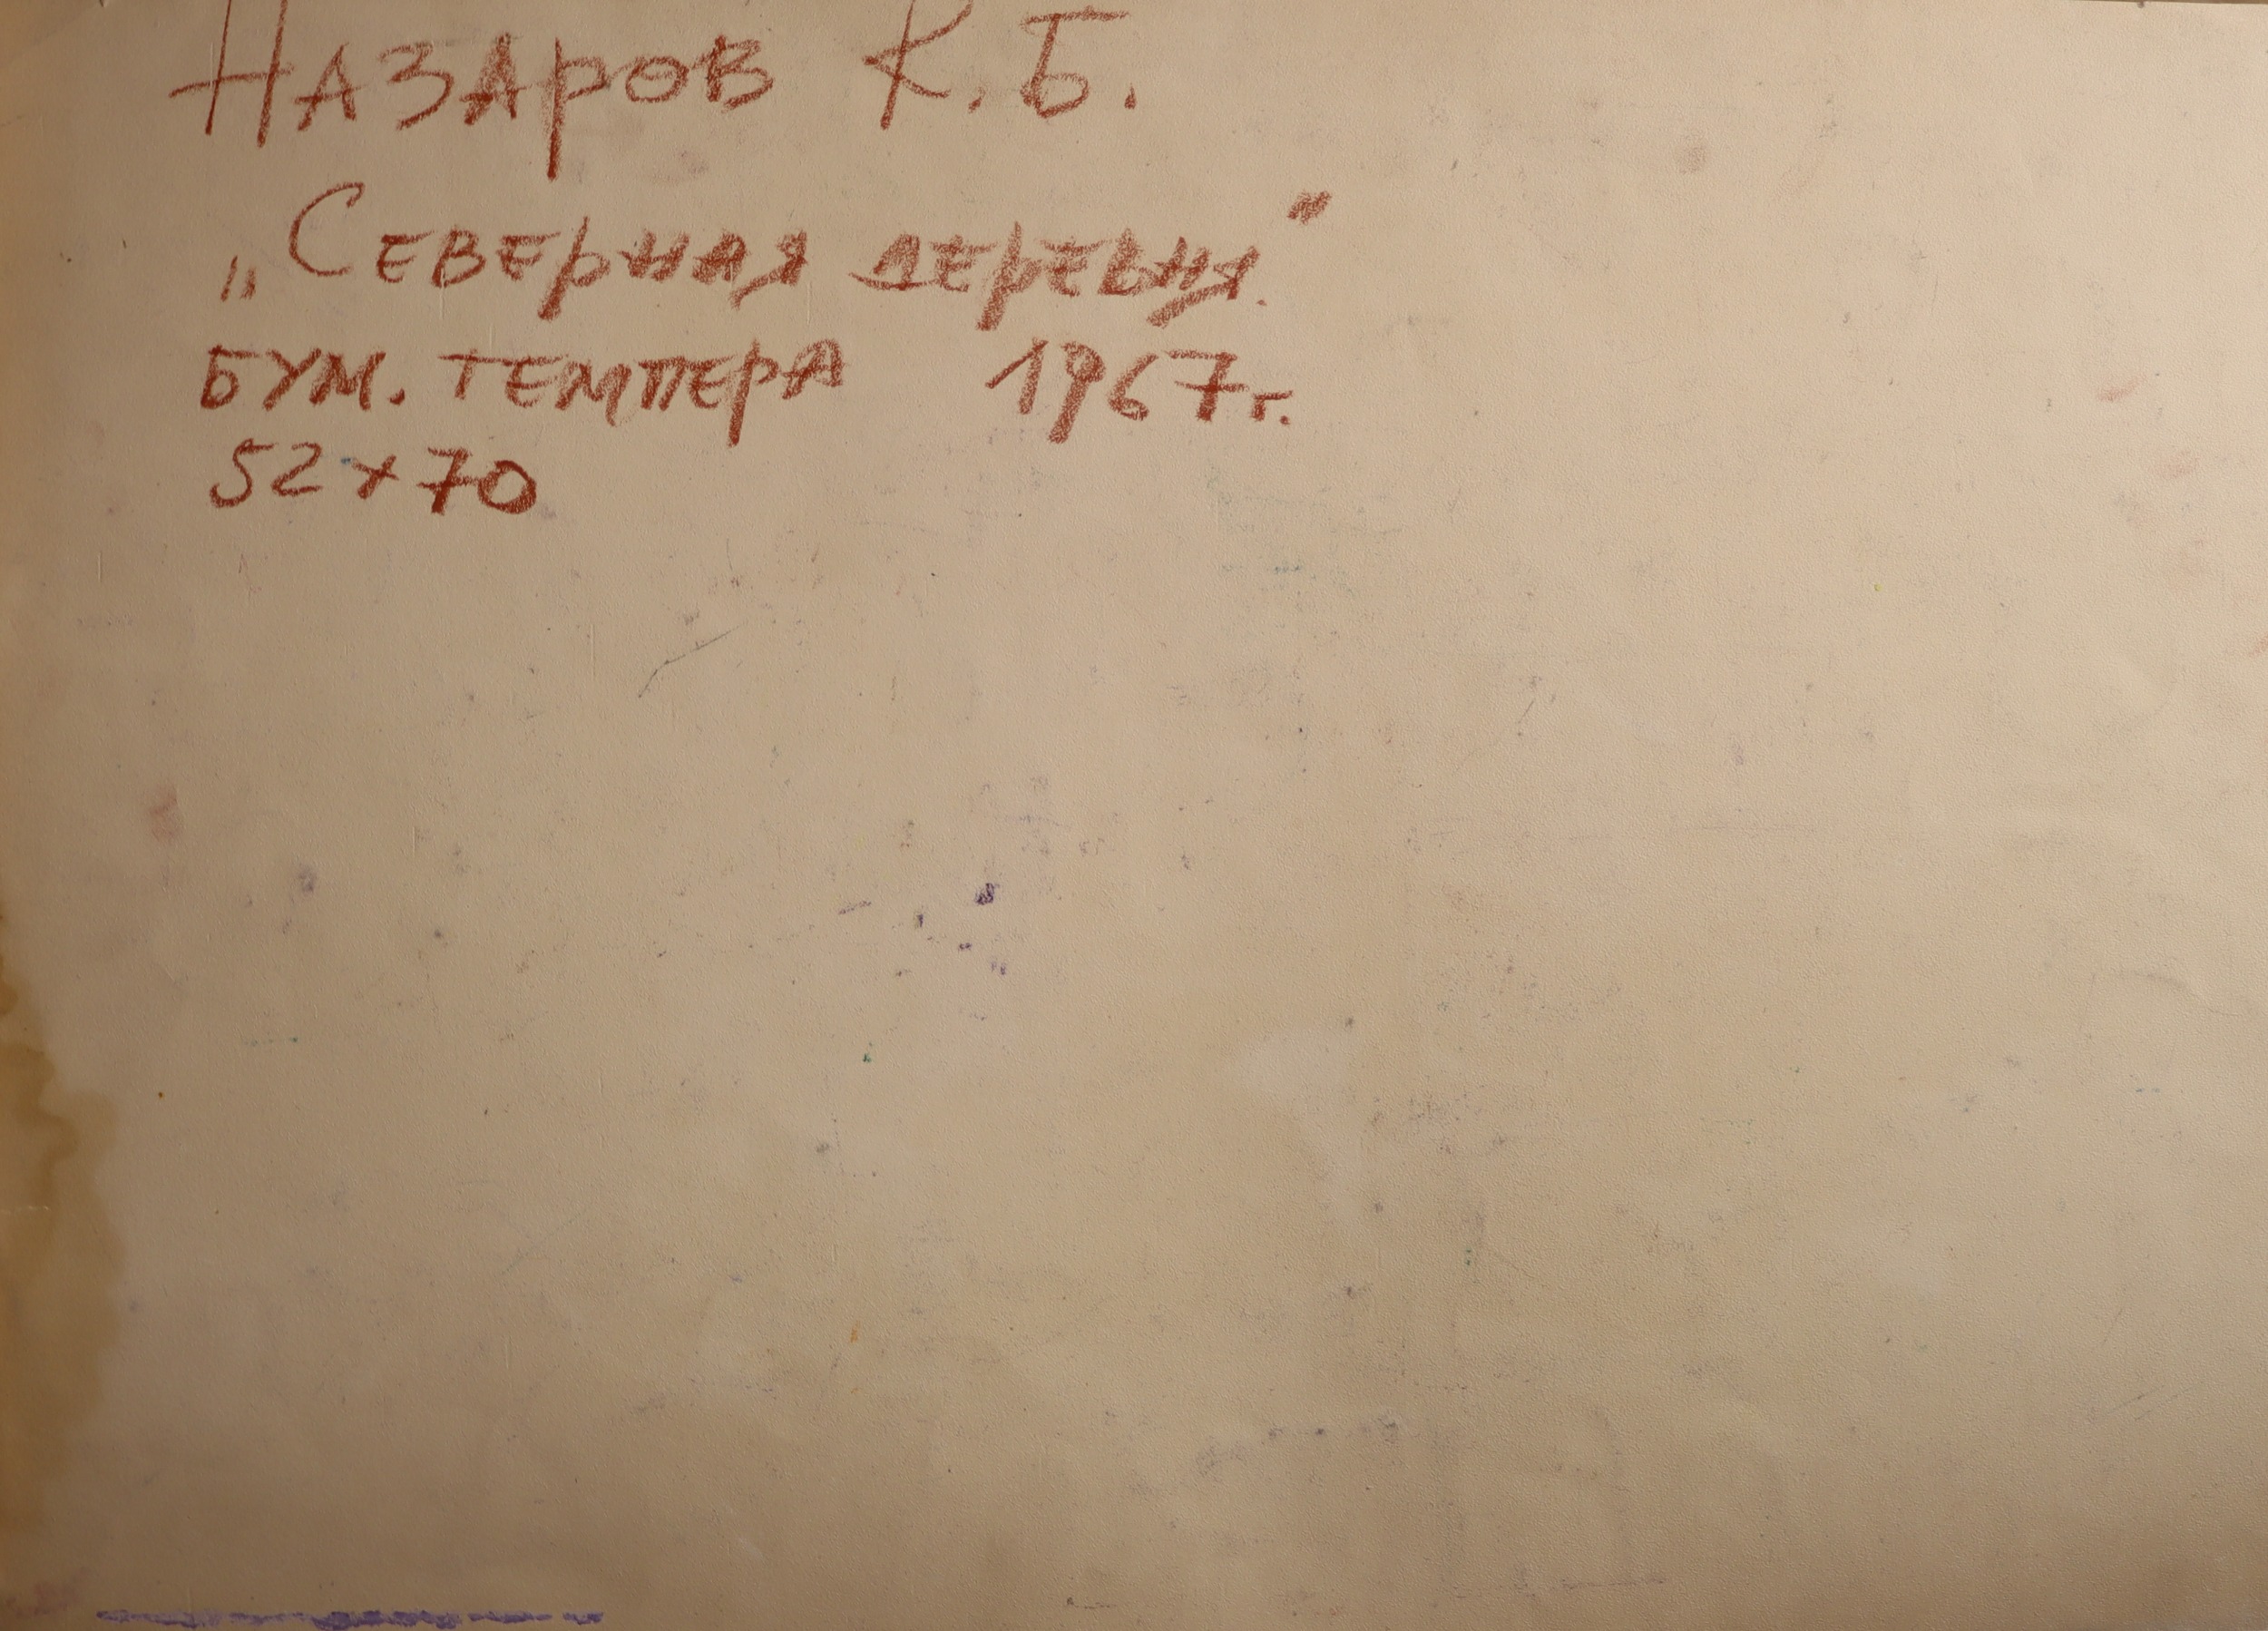 Назаров К.Б.
„Северная деревня."
бум. темпера 1967г.
52×70